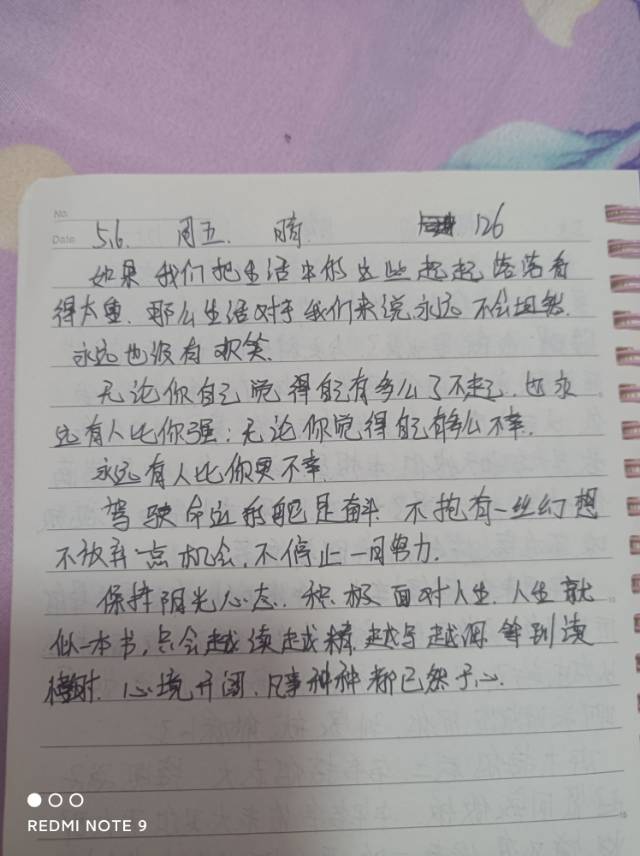 No.
Date 5.6. 周五. 晴. 126
如果我们把生活中的这些起起落落看
得太重. 那么生活对于我们来说永远不会坦然.
永远也没有欢笑.
无论你自己觉得自己有多么了不起. 也永
远有人比你强; 无论你觉得自己有多么不幸.
永远有人比你更不幸.
驾驶命运的舵是奋斗. 不抱有一丝幻想
不放弃一点机会, 不停止一日努力.
保持阳光心态. 积极面对人生. 人生就
似一本书, 只会越读越精 越写越深 等到读
时. 心境开阔. 凡事种种都已然于心.
REDMI NOTE 9